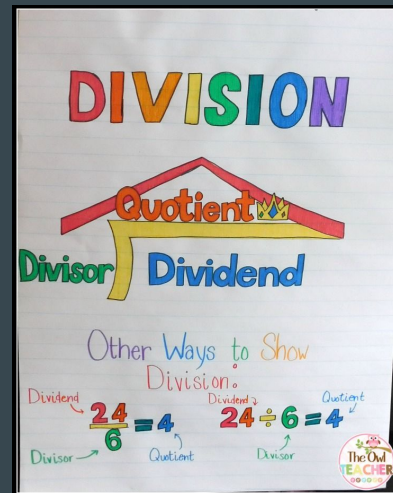 DIVISION
Quotient
Divisor Dividend
Other Ways to Show
Division:
Dividend
24
6
=4
Divisor
Quotient
Dividend
Quotient
24÷6=4
Divisor
The Owl
TEACHER